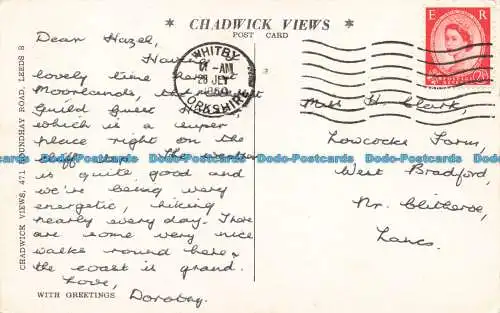 * CHADWICK VIEWS *
POST CARD
E R
WHITBY
-AM
YORKSHIRE
Dear Hazel,
Having
lovely time here
Moorlands,
Guild Guest
which is a super
place right on the
cliff top. The weather
is quite good and
we're being very
energetic, hiking
nearly every day. There
are some very nice
walks round here &
the coast is grand.
Love,
Dorothy.
WITH GREETINGS
CHADWICK VIEWS, 471 ROUNDHAY ROAD, LEEDS 8
Miss H. Clark,
Lowcocks Farm,
West Bradford,
Nr. Clitheroe,
Lancs.
Dodo-Postcards Dodo-Postcards Dodo-Postcards Dodo-Postcards